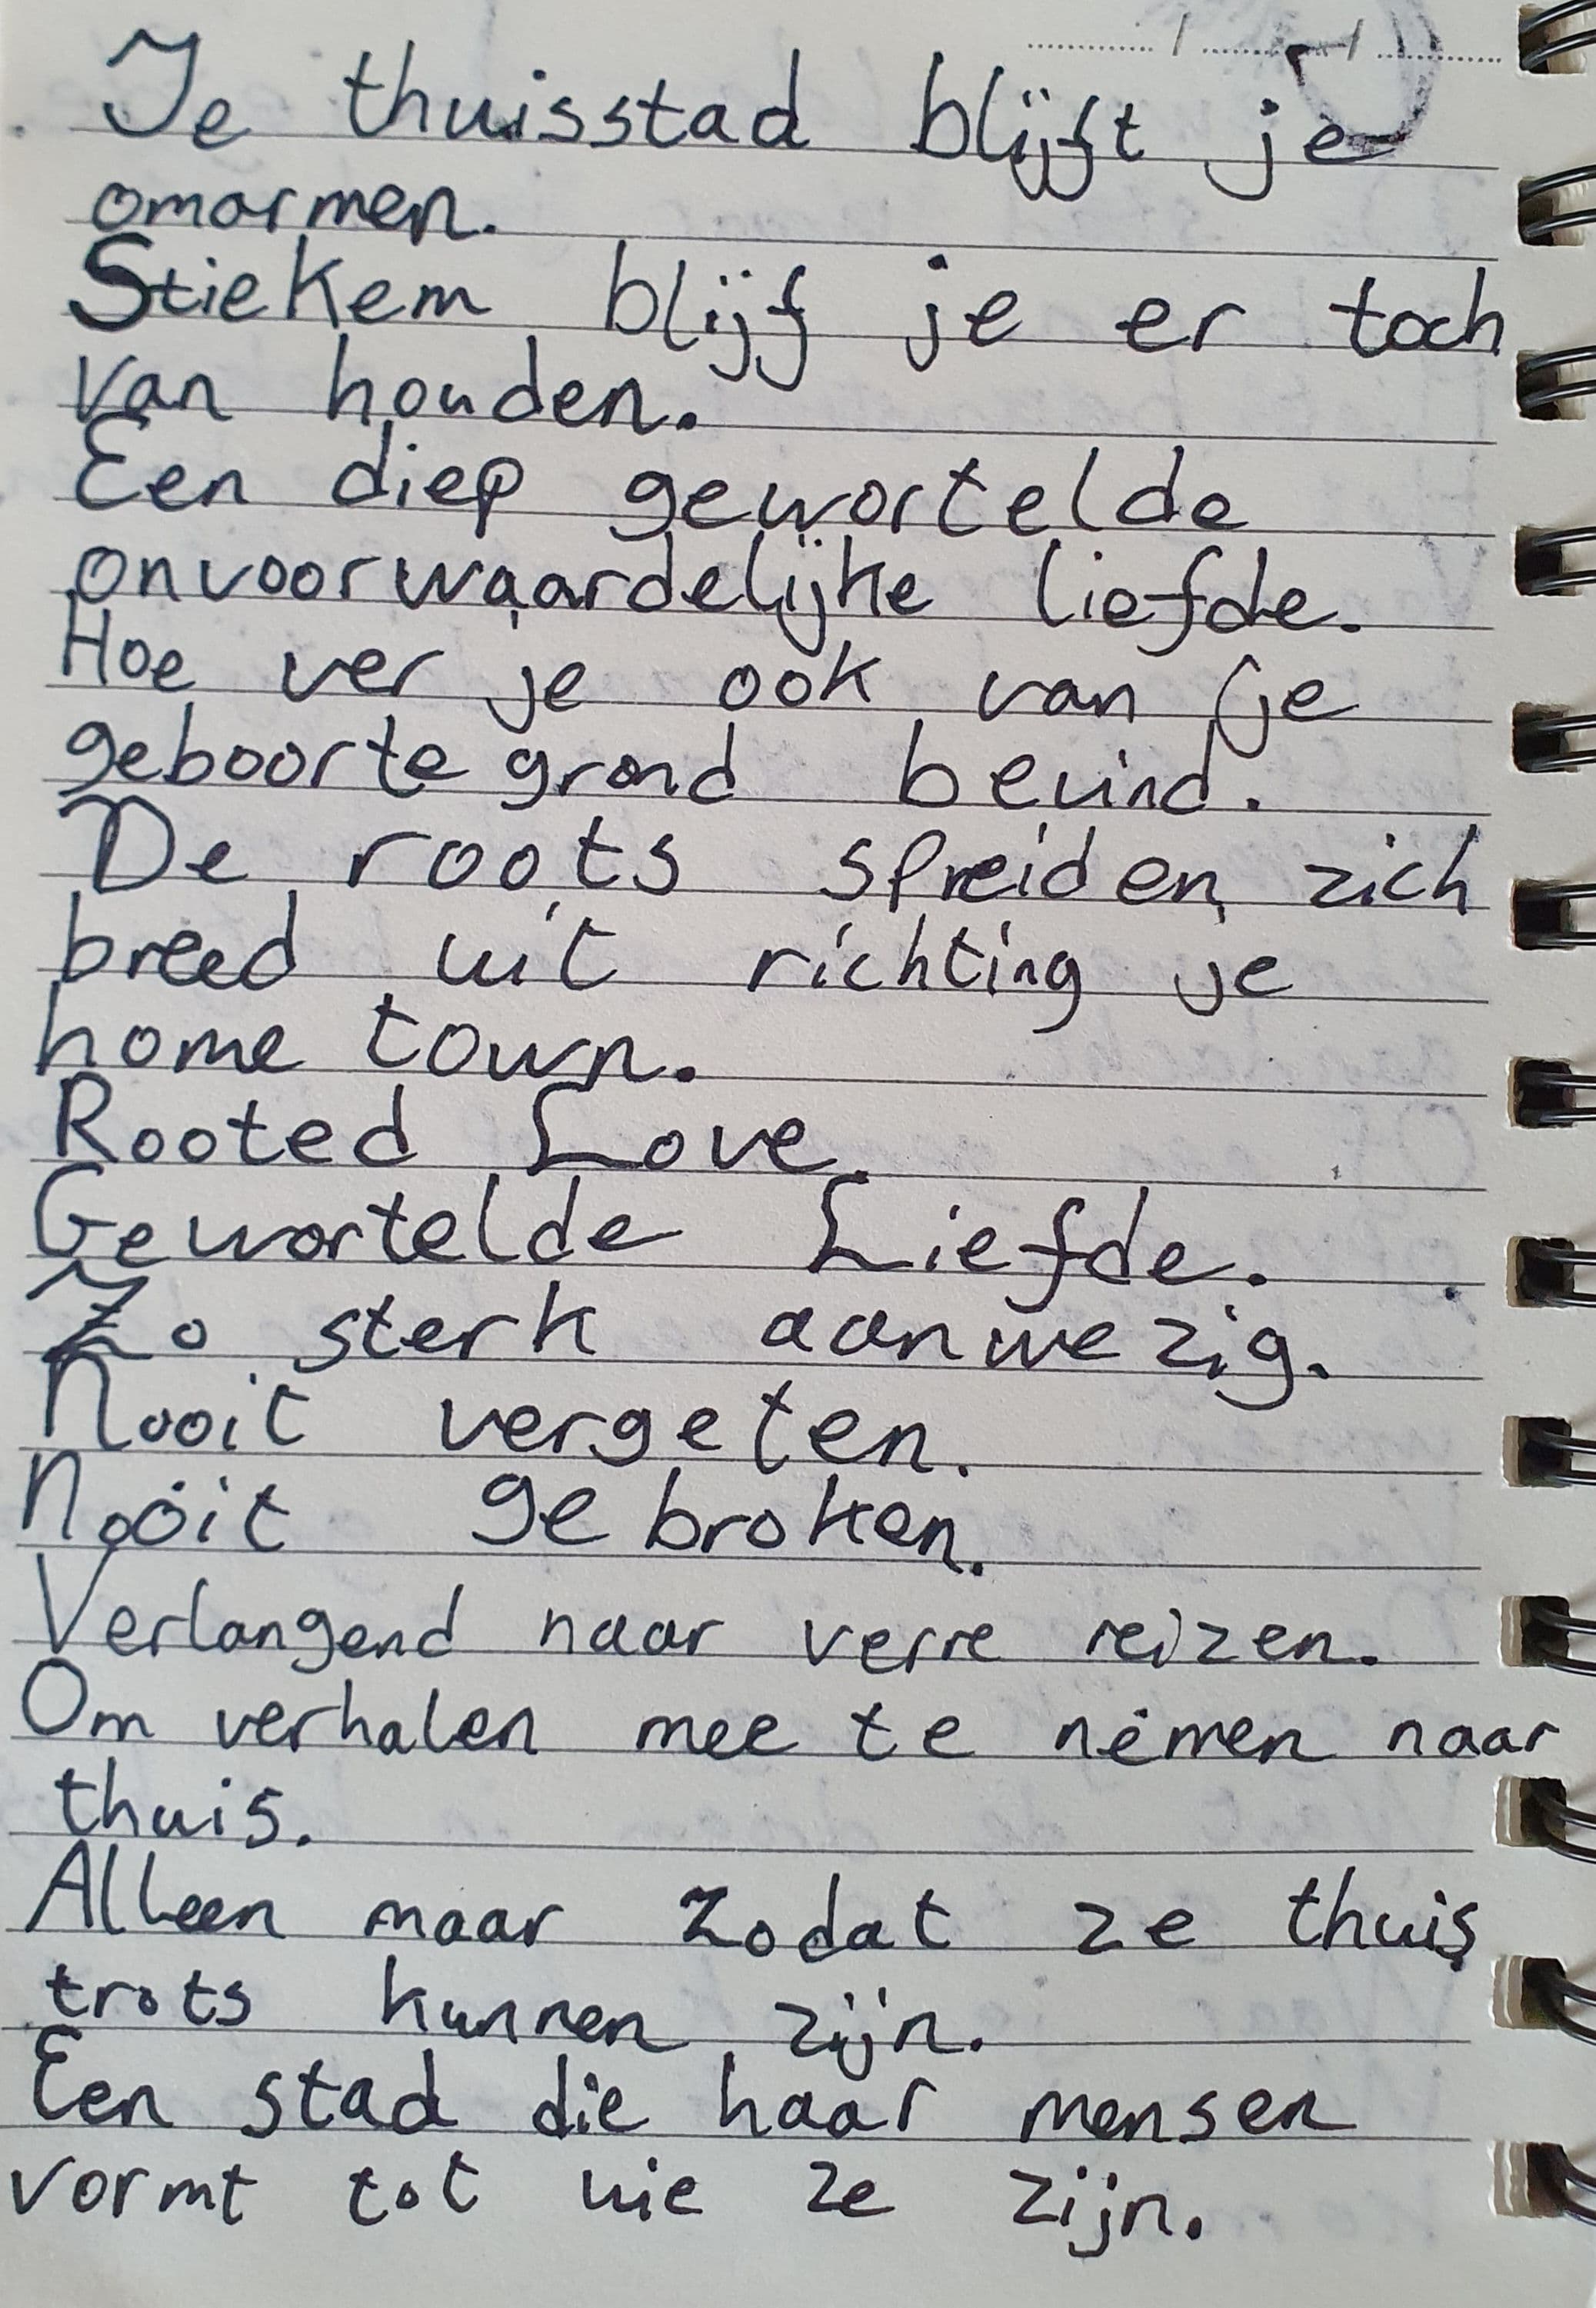 Je thuisstad blijft je
omarmen.
Stiekem blijf je er toch
van houden.
Een diep gewortelde
onvoorwaardelijke liefde.
Hoe ver je ook van je
geboorte grond bevind.
De roots spreiden zich
breed uit richting je
home town.
Rooted Love.
Gewortelde Liefde.
Zo sterk aanwezig.
Nooit vergeten.
Nooit gebroken.
Verlangend naar verre reizen.
Om verhalen mee te nemen naar
thuis.
Alleen maar zodat ze thuis
trots kunnen zijn.
Een stad die haar mensen
vormt tot wie ze zijn.